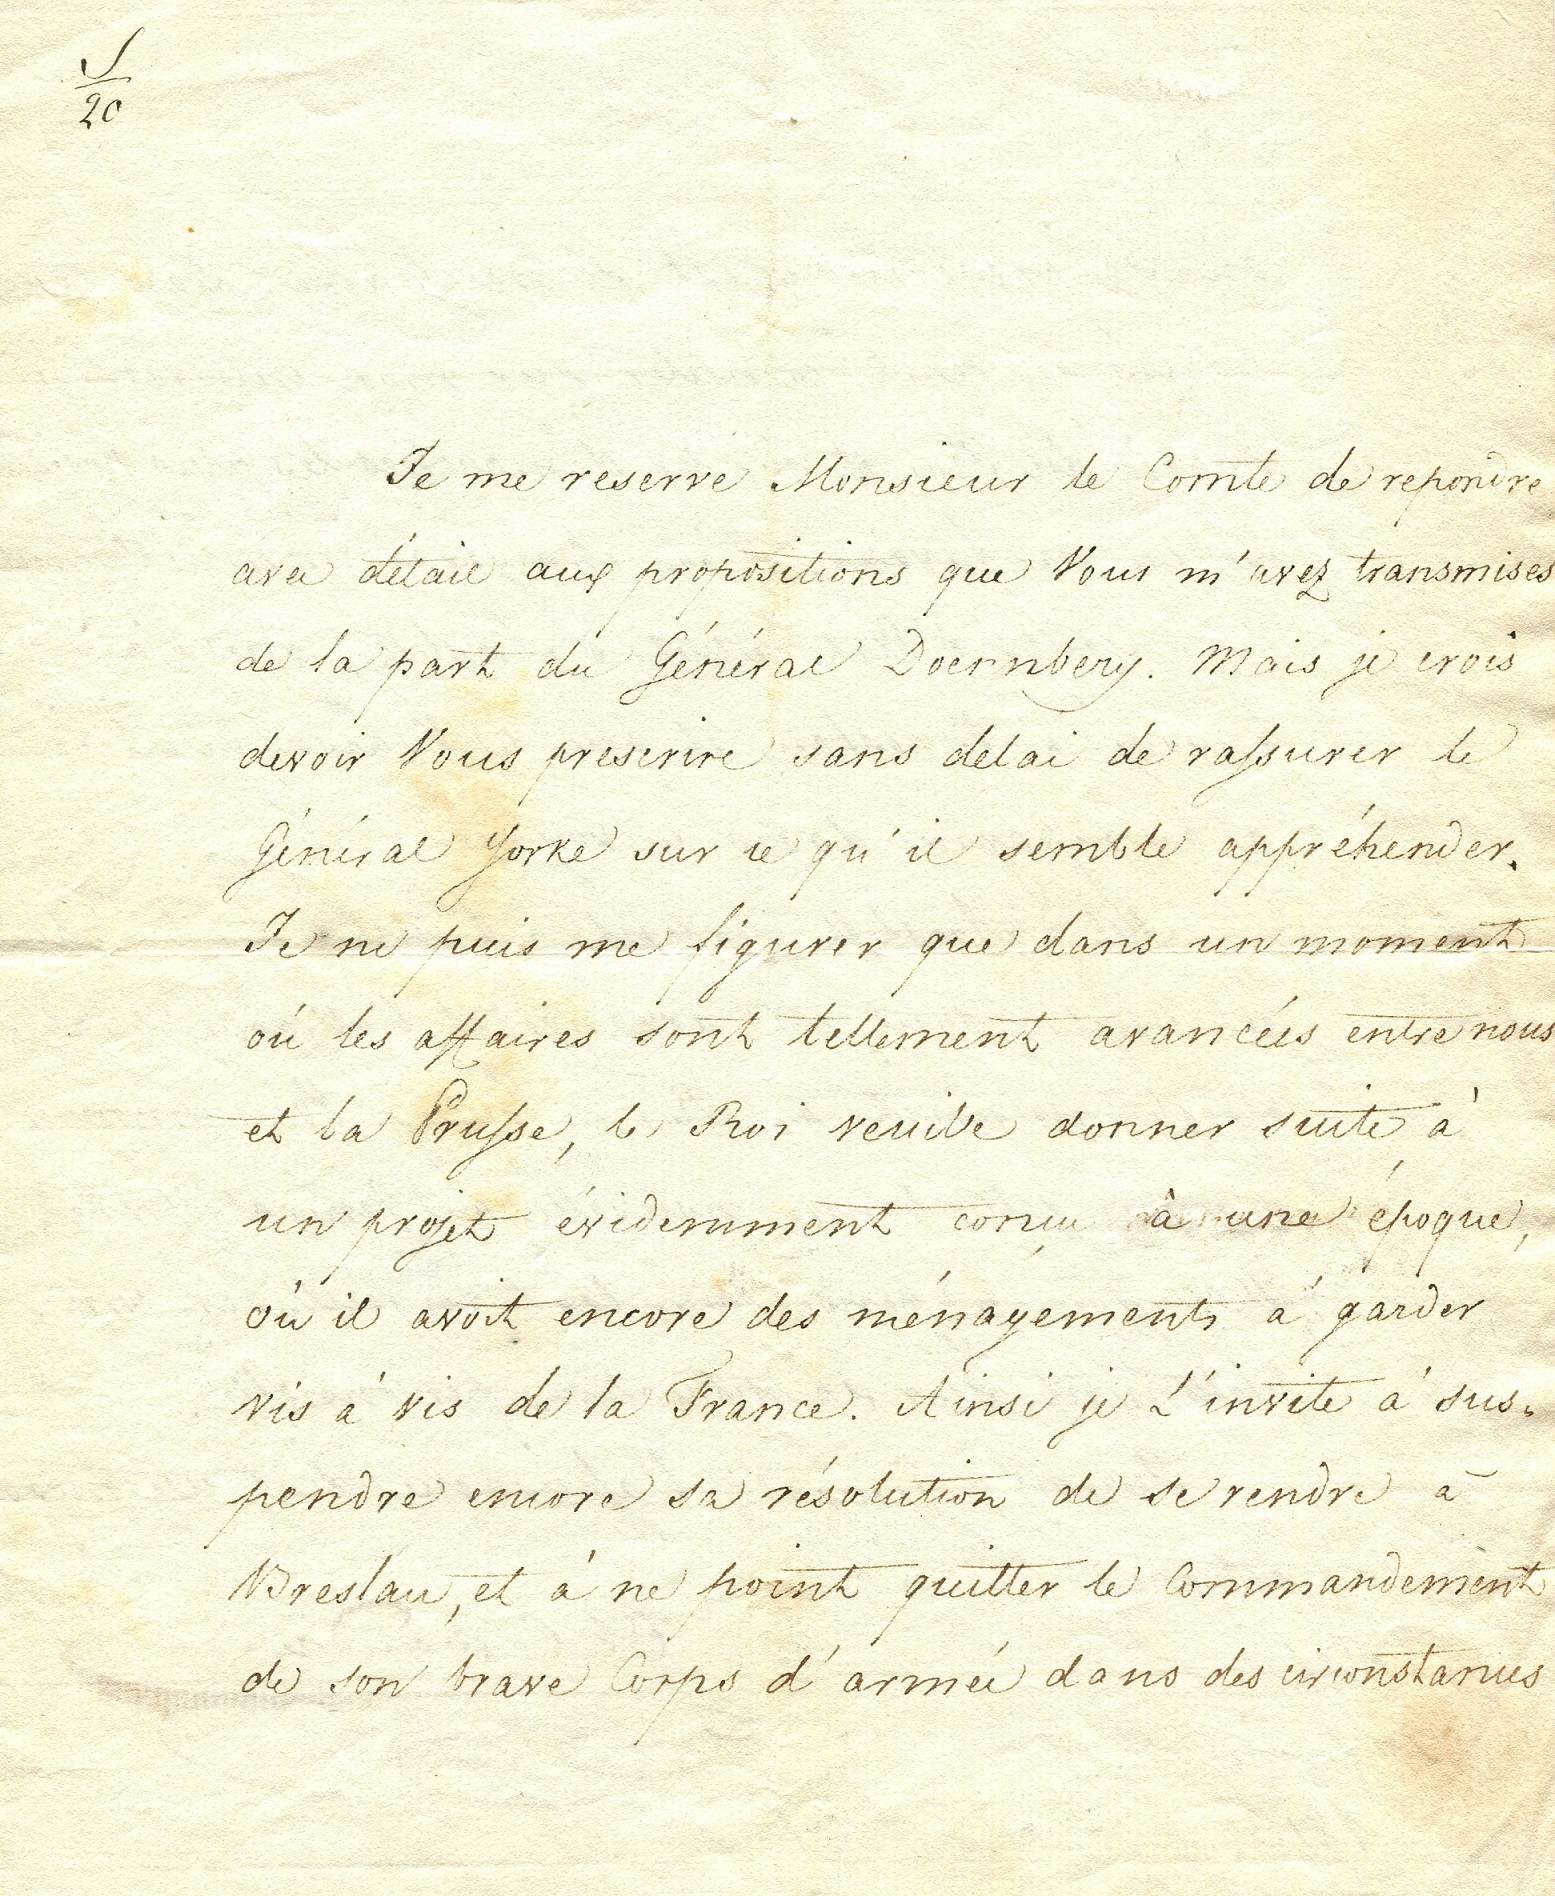 20
Je me reserve Monsieur le Comte de repondre
avec détail aux propositions que Vous m'avez transmises
de la part du Général Doernberg. Mais je crois
devoir Vous prescrire sans delai de rassurer le
Général Yorke sur ce qu'il semble appréhender.
Je ne puis me figurer que dans un moment
où les affaires sont tellement avancées entre nous
et la Prusse, le Roi veuille donner suite à
un projet évidemment conçu à une époque,
où il avoit encore des ménagements à garder
vis à vis de la France. Ainsi je L'invite à sus-
pendre encore sa résolution de se rendre à
Breslau, et à ne point quitter le Commandement
de son brave Corps d'armée dans des circonstances